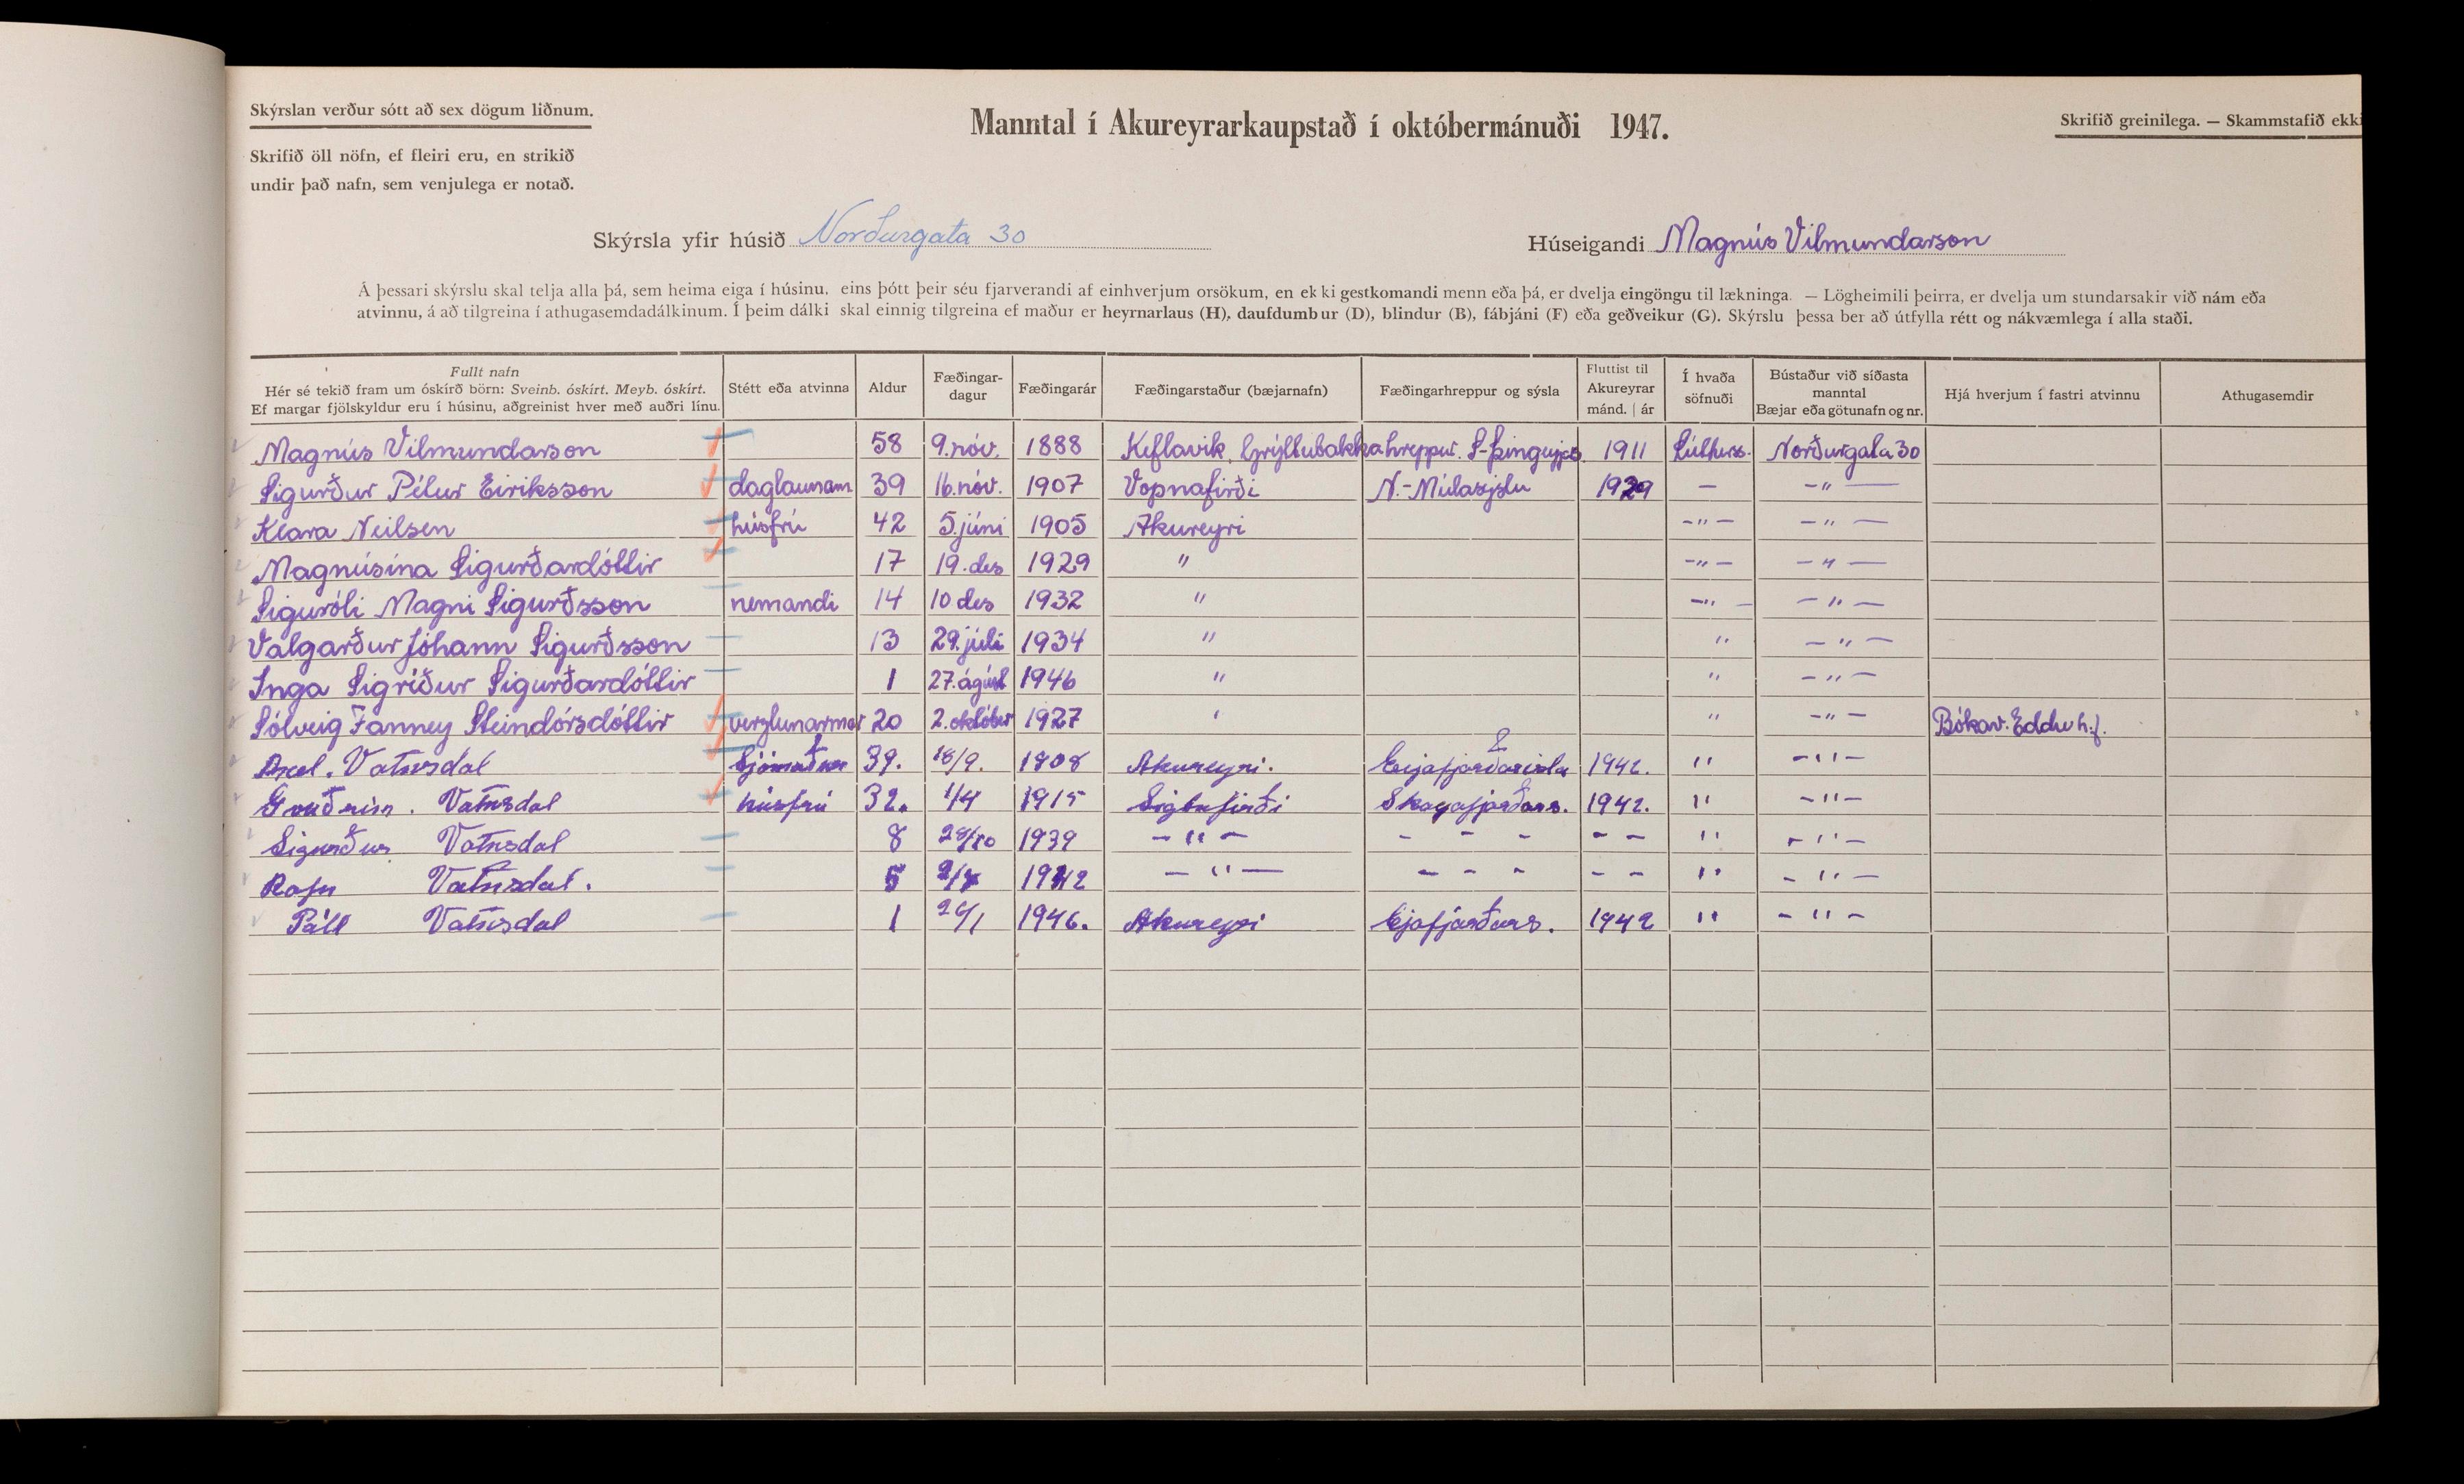 Skýrslan verður sótt að sex dögum liðnum.
Manntal í Akureyrarkaupstað í októbermánuði 1947.
Skrifið greinilega. — Skammstafið ekki
Skrifið öll nöfn, ef fleiri eru, en strikið
undir það nafn, sem venjulega er notað.
Skýrsla yfir húsið Norðurgata 30
Húseigandi Magnús Vilmundarson
Á þessari skýrslu skal telja alla þá, sem heima eiga í húsinu, eins þótt þeir séu fjarverandi af einhverjum orsökum, en ekki gestkomandi menn eða þá, er dvelja eingöngu til lækninga. — Lögheimili þeirra, er dvelja um stundarsakir við nám eða
atvinnu, á að tilgreina í athugasemdadálkinum. Í þeim dálki skal einnig tilgreina ef maður er heyrnarlaus (H), daufdumbur (D), blindur (B), fábjáni (F) eða geðveikur (G). Skýrslu þessa ber að útfylla rétt og nákvæmlega í alla staði.
Fullt nafn
Hér sé tekið fram um óskírð börn: Sveinb. óskírt. Meyb. óskírt.
Ef margar fjölskyldur eru í húsinu, aðgreinist hver með auðri línu.
Stétt eða atvinna
Aldur
Fæðingar-
dagur
Fæðingarár
Fæðingarstaður (bæjarnafn)
Fæðingarhreppur og sýsla
Fluttist til
Akureyrar
mánd. | ár
Í hvaða
söfnuði
Bústaður við síðasta
manntal
Bæjar eða götunafn og nr.
Hjá hverjum í fastri atvinnu
Athugasemdir
Magnús Vilmundarson 58 9. nóv. 1888 Keflavik, Grýtubakkahreppur. S-Þingeyjas. 1911 Lúthers. Norðurgata 30
Sigurður Pétur Eiriksson daglaunam 39 16. nóv. 1907 Vopnafirði N.-Múlasýslu 1929 — -"—
Klara Neilsen húsfrú 42 5. júni 1905 Akureyri -"- -"—
Magnúsína Sigurðardóttir 17 19. des 1929 " -"- -"—
Siguróli Magni Sigurðsson nemandi 14 10 des 1932 " -"- -"-
Valgarður Jóhann Sigurðsson 13 29. júli 1934 " " -"-
Inga Sigríður Sigurðardóttir 1 27. ágúst 1946 " " -"-
Sólveig Fanney Steindórsdóttir verzlunarmær 20 2. október 1927 ' " -"- Bókav. Eddu h.f.
Axel. Vatnsdal Sjómaður 39. 18/9. 1908 Akureyri. Eyjafjarðarsísla 1942. " -"-
Guðrún. Vatnsdal húsfrú 32. 1/4 1915 Siglufirði Skagafjarðars. 1942. " -"-
Sigurður Vatnsdal 8 1939 -"- - - - - - " -"-
Rafn Vatnsdal. 5 1942 -"- - - - - - " -"-
Páll Vatnsdal 1 26/1 1946. Akureyri Ejafjarðars. 1942 " -"-